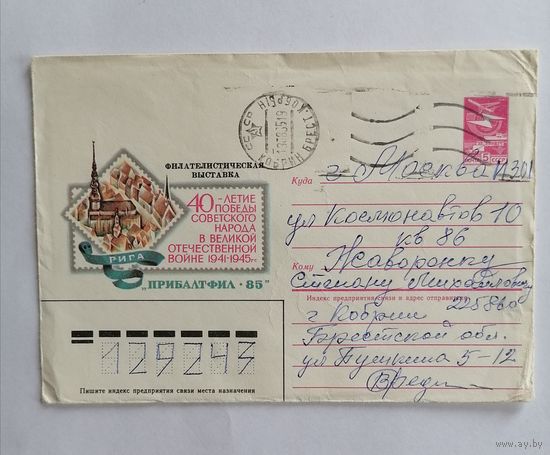 КОБРИН БРЕСТ.
ПОЧТА СССР
5
ФИЛАТЕЛИСТИЧЕСКАЯ
ВЫСТАВКА
40-ЛЕТИЕ
ПОБЕДЫ
СОВЕТСКОГО
НАРОДА
В ВЕЛИКОЙ
ОТЕЧЕСТВЕННОЙ
ВОЙНЕ 1941-1945гг.
РИГА
"ПРИБАЛТФИЛ·85"
Куда г Москва
ул Космонавтов 10
кв 86
Кому Жаворонку
Степану Михайловичу
Индекс предприятия связи и адрес отправителя
225860
г Кобрин
Брестской обл.
ул Пушкина 5-12
129243
Пишите индекс предприятия связи места назначения
www.ay.by